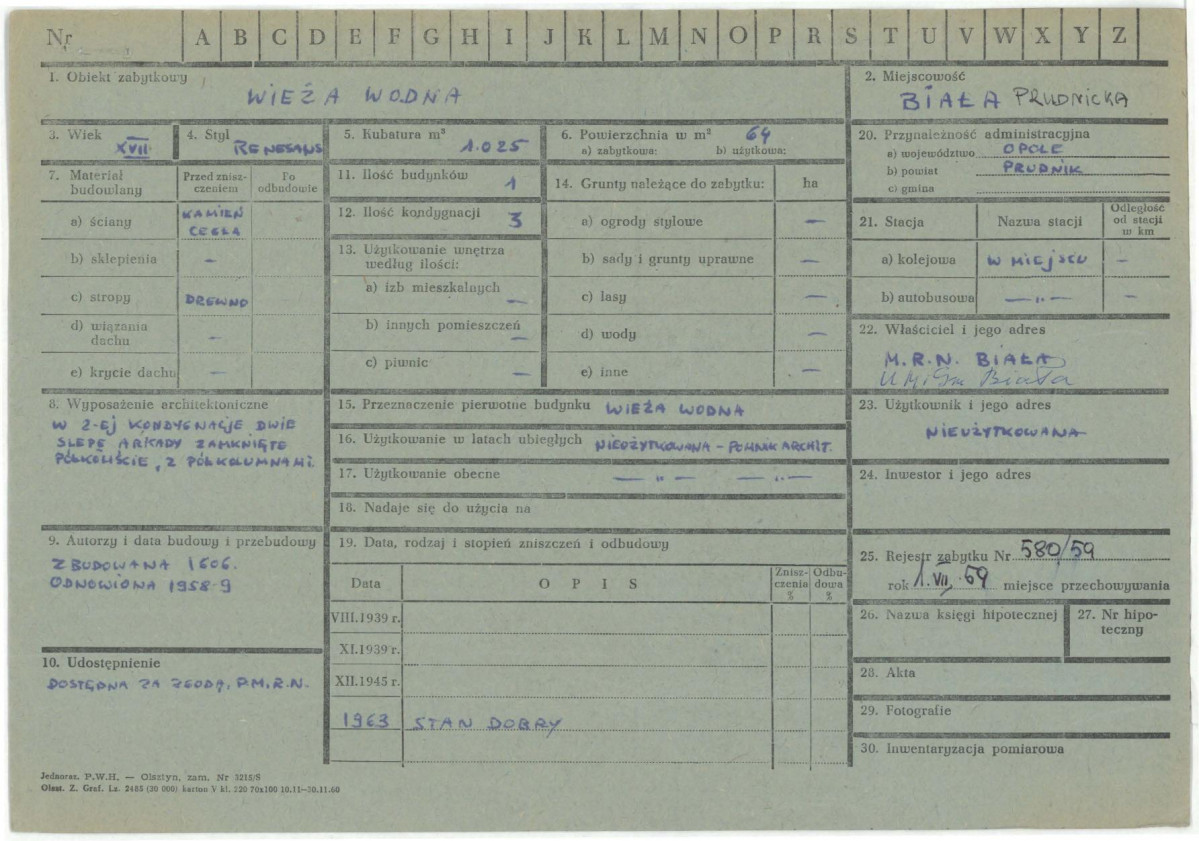 Nr A B C D E F G H I J K L M N O P R S T U V W X Y Z
1. Obiekt zabytkowy
WIEŻA WODNA
2. Miejscowość
BIAŁA PRUDNICKA
3. Wiek XVII
4. Styl RENESANS
5. Kubatura m³ 1.025
6. Powierzchnia w m² 64
a) zabytkowa: b) użytkowa:
20. Przynależność administracyjna
a) województwo OPOLE
b) powiat PRUDNIK
c) gmina
7. Materiał budowlany
Przed zniszczeniem
Po odbudowie
a) ściany KAMIEŃ
CEGŁA
b) sklepienia –
c) stropy DREWNO
d) wiązania dachu –
e) krycie dachu –
11. Ilość budynków 1
12. Ilość kondygnacji 3
13. Użytkowanie wnętrza
według ilości:
a) izb mieszkalnych –
b) innych pomieszczeń –
c) piwnic –
14. Grunty należące do zabytku: ha
a) ogrody stylowe –
b) sady i grunty uprawne –
c) lasy –
d) wody –
e) inne –
21. Stacja Nazwa stacji Odległość od stacji w km
a) kolejowa W MIEJSCU –
b) autobusowa —„— –
22. Właściciel i jego adres
M.R.N. BIAŁA
Biała
8. Wyposażenie architektoniczne
W 2-EJ KONDYGNACJE DWIE
SLEPE ARKADY ZAMKNIĘTE
PÓŁKOLIŚCIE, Z PÓŁKOLUMNAMI.
15. Przeznaczenie pierwotne budynku WIEŻA WODNA
16. Użytkowanie w latach ubiegłych NIEUŻYTKOWANA – POMNIK ARCHIT.
17. Użytkowanie obecne —„— —„—
18. Nadaje się do użycia na
23. Użytkownik i jego adres
NIEUŻYTKOWANA
24. Inwestor i jego adres
9. Autorzy i data budowy i przebudowy
ZBUDOWANA 1606.
ODNOWIONA 1958-9
19. Data, rodzaj i stopień zniszczeń i odbudowy
Data OPIS Zniszczenia % Odbudowa %
VIII.1939 r.
XI.1939 r.
XII.1945 r.
1963 STAN DOBRY
25. Rejestr zabytku Nr 580/59
rok 1.VII.59 miejsce przechowywania
26. Nazwa księgi hipotecznej
27. Nr hipoteczny
10. Udostępnienie
DOSTĘPNA ZA ZGODĄ, P.M.R.N.
28. Akta
29. Fotografie
30. Inwentaryzacja pomiarowa
Jednoraz. P.W.H. — Olsztyn, zam. Nr 3215/S
Olszt. Z. Graf. Lz. 2485 (30 000) karton V kl. 220 70x100 10.11—30.11.60